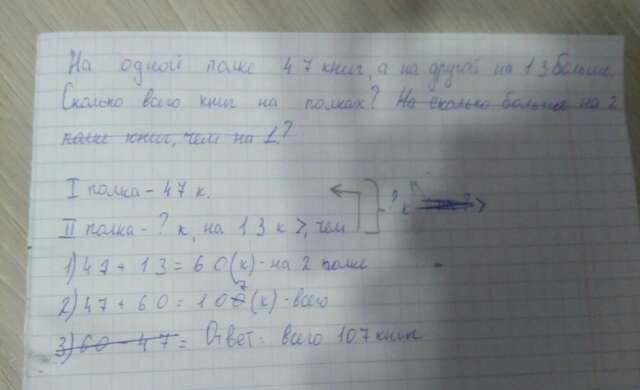 На одной полке 47 книг, а на другой на 13 больше.
Сколько всего книг на полках? На сколько больше на 2
полке книг, чем на 1?
I полка - 47 к.
II полка - ? к, на 13 к >, чем ? к
1) 47 + 13 = 60 (к) - на 2 полке
2) 47 + 60 = 107 (к) - всего
3) 60 - 47 = Ответ: всего 107 книг